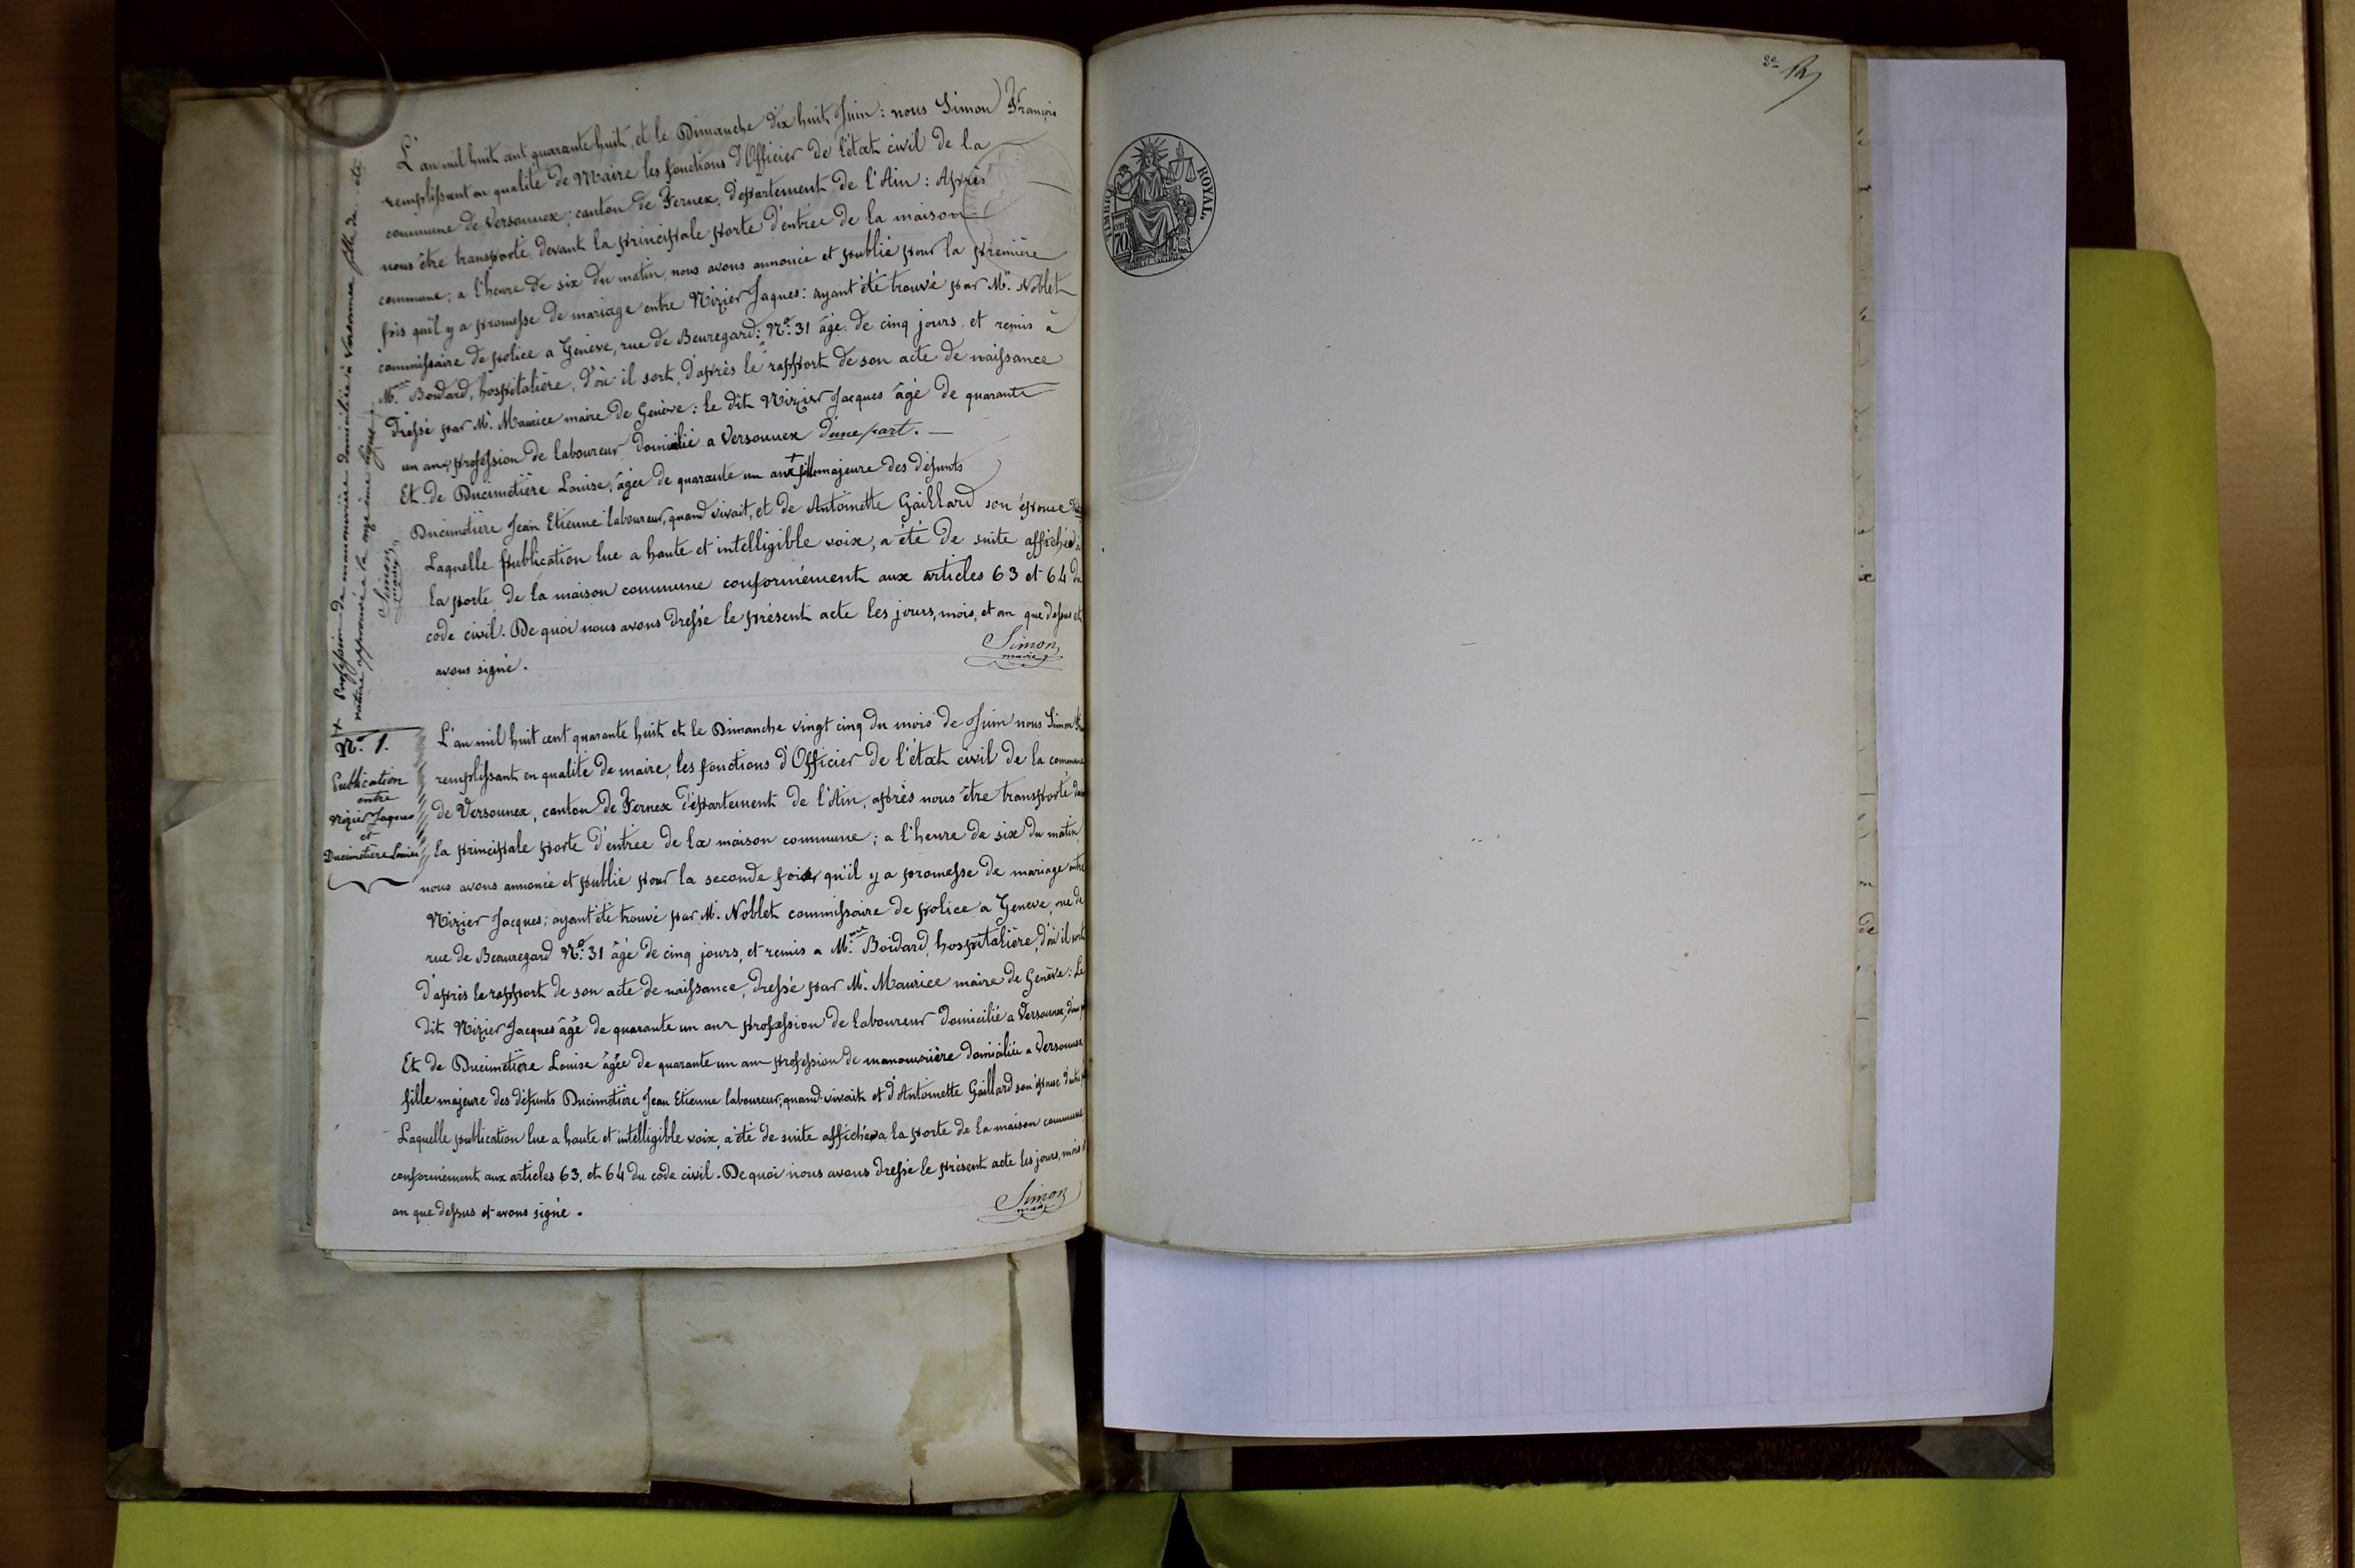 L'an mil huit cent quarante huit, et le Dimanche dix huit Juin : nous Simon François
remplissant en qualité de Maire les fonctions d'Officier de l'état civil de la
commune de Versonnex, canton de Fernex, département de l'Ain : Après
nous être transporté devant la principale porte d'entrée de la maison
commune ; a l'heure de six du matin, nous avons annoncé et publié pour la première
fois qu'il y a promesse de mariage entre Nizier Jaques : ayant été trouvé par Mr. Noblet
commissaire de police a Genève, rue de Beuregard : No. 31 âgé de cinq jours, et remis à
Mme Boidard, hospitalière, d'où il sort, d'après le rapport de son acte de naissance
dressé par Mr. Maurice maire de Genève : le dit Nizier Jacques âgé de quarante
un an, profession de laboureur domicilié a Versonnex d'une part. —
Et de Ducimetière Louise, âgée de quarante un an + fille majeure des défunts
Ducimetière Jean Etienne laboureur, quand vivait, et de Antoinette Gaillard son épouse
Laquelle publication lue a haute et intelligible voix, a été de suite affichée à
la porte de la maison commune conformément aux articles 63 et 64 du
code civil. De quoi nous avons dressé le présent acte les jours, mois, et an que dessus et
avons signé.
Simon
maire
+ Profession de manouvrière domiciliée à Versonnex fille de
rature approuvée a la onzième ligne
Simon
maire
No. 1.
Publication
entre
Nizier Jaques
et
Ducimetière Louise
L'an mil huit cent quarante huit et le Dimanche vingt cinq du mois de Juin nous Simon
remplissant en qualité de maire, les fonctions d'Officier de l'état civil de la commune
de Versonnex, canton de Fernex département de l'Ain, après nous être transporté
la principale porte d'entrée de la maison commune ; a l'heure de six du matin,
nous avons annoncé et publié pour la seconde fois, qu'il y a promesse de mariage entre
Nizier Jacques ; ayant été trouvé par Mr. Noblet commissaire de police a Geneve, rue de
rue de Beauregard No. 31 âgé de cinq jours, et remis a Mme Boidard, hospitalière, d'où il sort
d'après le rapport de son acte de naissance, dressé par Mr. Maurice maire de Genève : Le
dit Nizier Jacques âgé de quarante un an profession de laboureur domicilié a Versonnex, d'une
Et de Ducimetière Louise âgée de quarante un an profession de manouvrière domiciliée a Versonnex
fille majeure des défunts Ducimetière Jean Etienne laboureur, quand vivait et d'Antoinette Gaillard son épouse d'autre
Laquelle publication lue a haute et intelligible voix, a été de suite affichée a la porte de la maison commune,
conformément aux articles 63, et 64 du code civil. De quoi nous avons dressé le présent acte les jours, mois
an que dessus et avons signé.
Simon
maire
2e
TIMBRE ROYAL.
70